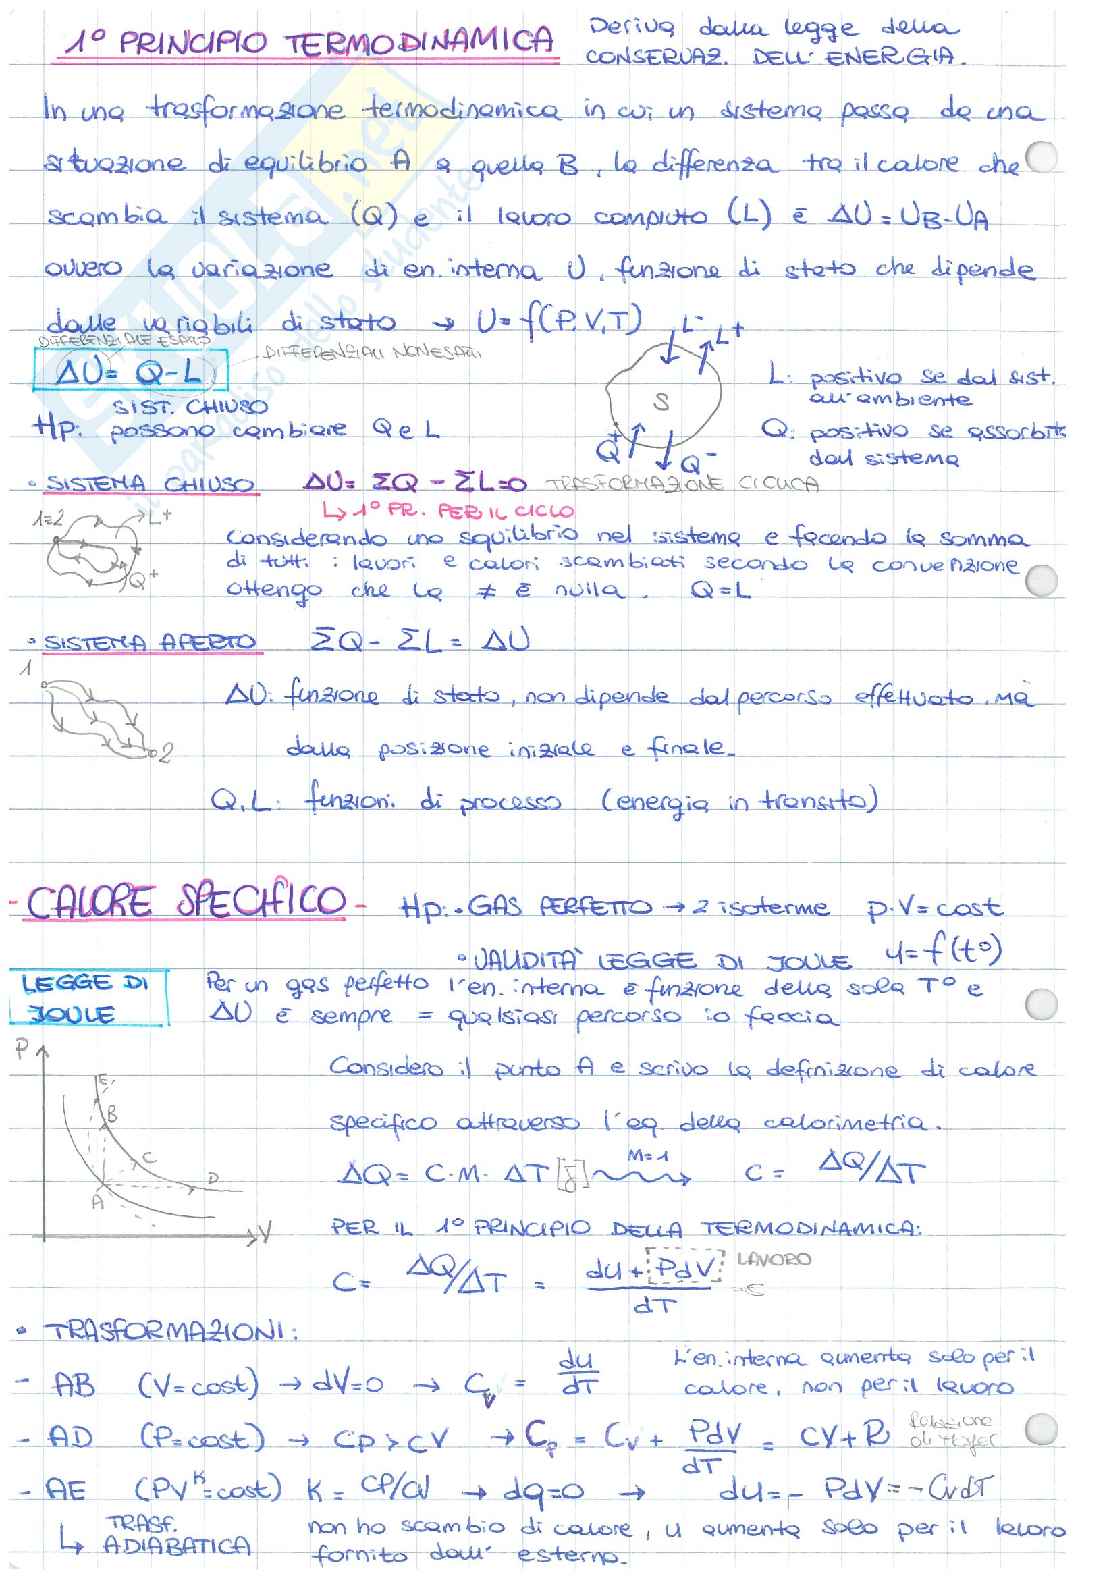 1° PRINCIPIO TERMODINAMICA Deriva dalla legge della
CONSERVAZ. DELL'ENERGIA.
In una trasformazione termodinamica in cui un sistema passa da una
situazione di equilibrio A a quella B, la differenza tra il calore che
scambia il sistema (Q) e il lavoro compiuto (L) è ΔU = UB-UA
ovvero la variazione di en. interna U, funzione di stato che dipende
dalle variabili di stato → U=f(P,V,T)
DIFFERENZIALE ESATTO
DIFFERENZIALI NON ESATTI
ΔU= Q-L
SIST. CHIUSO
Hp: possono cambiare Q e L
L- L+
S
Q+ Q-
L: positivo se dal sist.
all'ambiente
Q: positivo se assorbito
dal sistema
• SISTEMA CHIUSO ΔU= ΣQ - ΣL=0 TRASFORMAZIONE CICLICA
↳ 1° PR. PER IL CICLO
1=2 L+
Q+
Considerando uno squilibrio nel sistema e facendo la somma
di tutti i lavori e calori scambiati secondo la convenzione
ottengo che la ≠ è nulla. Q=L
• SISTEMA APERTO ΣQ- ΣL= ΔU
1
2
ΔU: funzione di stato, non dipende dal percorso effettuato. Ma
dalla posizione iniziale e finale.
Q,L: funzioni di processo (energia in transito)
- CALORE SPECIFICO - Hp: • GAS PERFETTO → 2 isoterme p.V=cost
• VALIDITÀ LEGGE DI JOULE u=f(t°)
LEGGE DI
JOULE
Per un gas perfetto l'en. interna è funzione della sola T° e
ΔU è sempre = qualsiasi percorso io faccia
P
E
B
C
D
A
V
Considero il punto A e scrivo la definizione di calore
specifico attraverso l'eq. della calorimetria.
ΔQ= C·M· ΔT [J] M=1 → C= ΔQ/ΔT
PER IL 1° PRINCIPIO DELLA TERMODINAMICA:
C= ΔQ/ΔT = du + PdV / dT LAVORO
• TRASFORMAZIONI:
- AB (V=cost) → dV=0 → Cv = du/dT L'en. interna aumenta solo per il
calore, non per il lavoro
- AD (P=cost) → CP>CV → Cp = Cv + PdV/dT = CV+R Relazione
di Mayer
- AE (PV^K=cost) K= CP/CV → dq=0 → du=- PdV=-CvdT
↳ TRASF.
ADIABATICA
non ho scambio di calore, u aumenta solo per il lavoro
fornito dall'esterno.